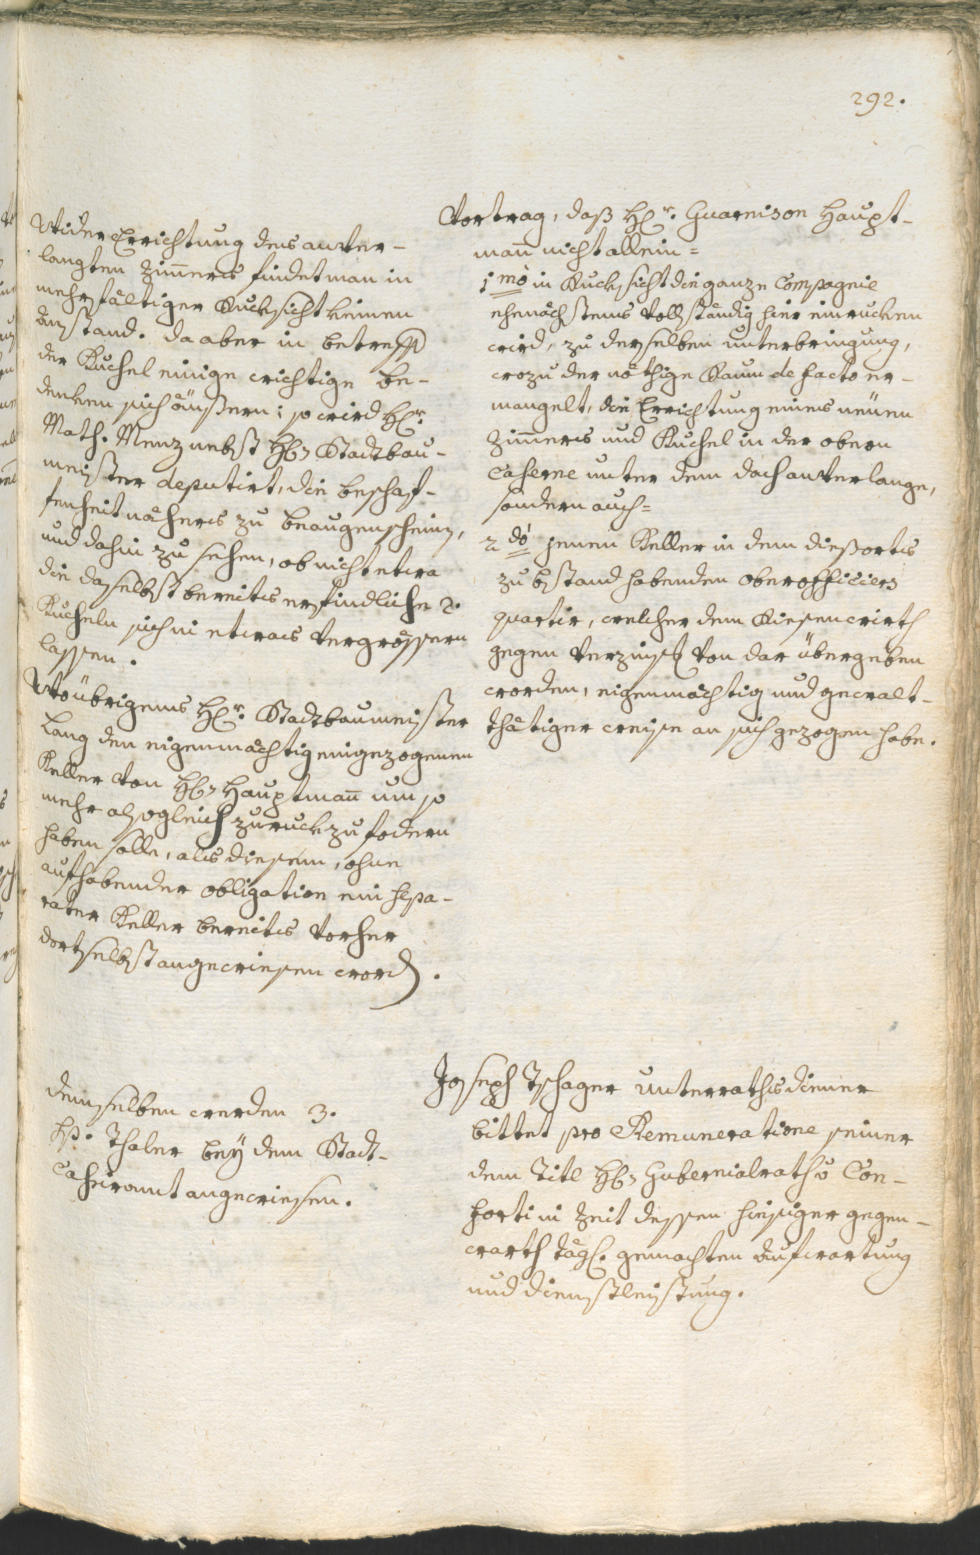 292.
Vortrag, daß H(er)r. Guarnison Haupt-
mañ nicht allein =
1mò in Rucksicht die ganze Compagnie
ehenächstens vollständig hier einrucken
wird, zu derselben unterbringung,
wozu der nöthige Raum de facto er-
mangelt, die Errichtung eines neüen
Zim̃ers und Kuchel in der obern
Caserne unter dem dach anverlange,
sondern auch =
2dò jenen Keller in dem dießorts
zu bstand habenden oberofficiers
quartir, welcher dem Riesenwirth
gegen Verzinß von dar übergeben
worden, eigenmächtig und gewalt-
thätiger weise an sich gezogen habe.
Wider Errichtung des anver-
langten Zim̃ers findet man in
mehrfältiger Rucksicht keinen
Anstand. da aber in betreff
der Kuchel einige wichtige Be-
denken sich äußern; so wird Hr.
Math. Menz nebst H. Stadtbau-
meister deputirt, die beschaf-
fenheit näheres zu beaugenscheinen,
und dahin zu sehen, ob nicht etwa
die daselbst bereits erfindliche 2.
Kucheln sich in etwas vergrössern
lassen.
Wo übrigens Hr. Stadtbaumeister
Lang den eigenmächtig eingezogenen
Keller von H. Hauptmañ um so
mehr alsogleich zuruck zu fodern
haben solle, als diesem, ohne
aufhabender obligation ein sepa-
rater Keller bereits vorher
dortselbst angewiesen word.
Joseph Tschager Unterrathsdiener
bittet pro Remuneratione seiner
dem Titl H. Gubernialrath v Con-
forti in Zeit dessen hiesiger gegen-
warth tägl. gemachten Aufwartung
und dienstleistung.
demselben werden 3.
sp. Thaler bey dem Stadt-
Cassieramt angewiesen.